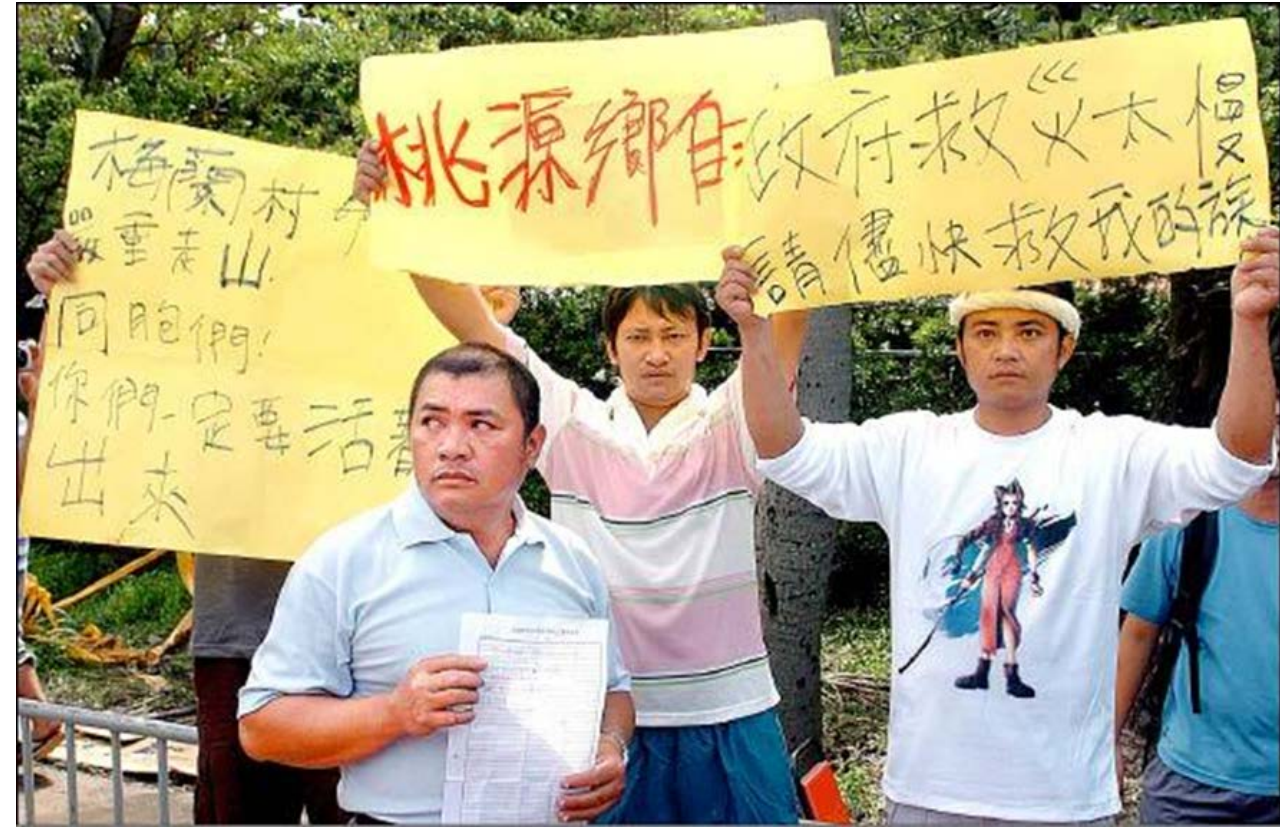 梅蘭村
嚴重走山!
同胞們!
你們一定要活著
出來
桃源鄉自
政府救災太慢
請儘快救我的族